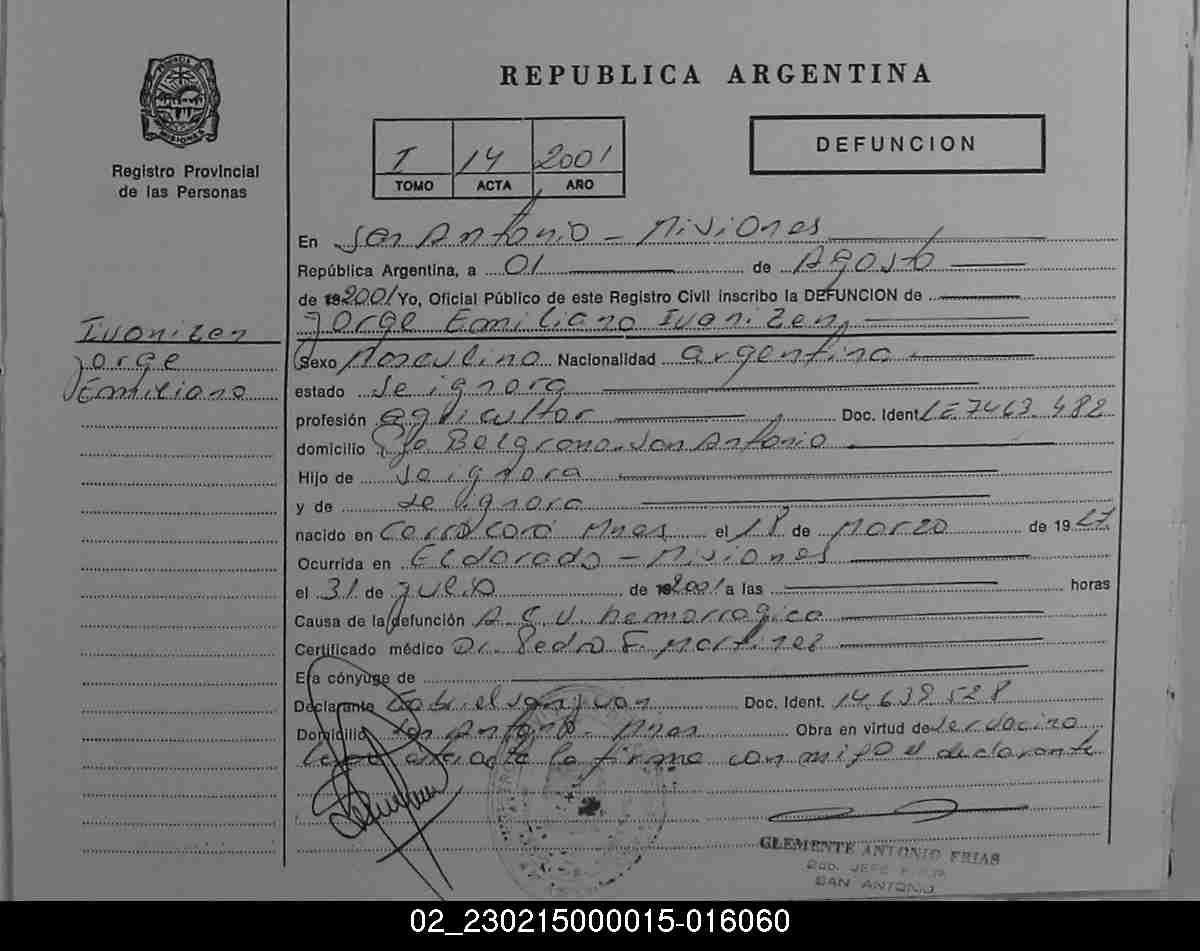 REPUBLICA ARGENTINA
PROVINCIA DE
MISIONES
Registro Provincial
de las Personas
I 14 2001
TOMO ACTA AÑO
DEFUNCION
En San Antonio - Misiones
República Argentina, a 01 de Agosto
de 2001 Yo, Oficial Público de este Registro Civil inscribo la DEFUNCION de
Jorge Emiliano Ivanizen
Ivanizen
Jorge
Emiliano
Sexo Masculino Nacionalidad argentina
estado se ignora
profesión agricultor Doc. Ident. LE 7463.482
domicilio Pje Belgrano. San Antonio
Hijo de se ignora
y de se ignora
nacido en Cerro Corá Mnes el 18 de Marzo de 1927
Ocurrida en Eldorado - Misiones
el 31 de Julio de 2001 a las horas
Causa de la defunción A.C.V. hemorragico
Certificado médico Dr. Pedro F. Martinez
Era cónyuge de
Declarante Gabriel Doc. Ident. 14.639.528
Domicilio San Antonio. Mnes Obra en virtud de ser vecino
la firma conmigo el declarante
CLEMENTE ANTONIO FRIAS
SAN ANTONIO
02_230215000015-016060